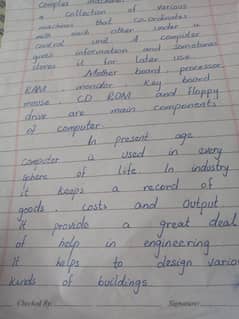 Complex machine.
a collection of various
machines that co-ordinates
with each other under a
control unit A computer
gives information and sometimes
stores it for later use.
Mother board, processor,
RAM, monitor, Key board
mouse, CD ROM and floppy
drive are main components
of computer.
In present age
computer is used in every
sphere of life In industry
it keeps a record of
goods, costs and output
It provide a great deal
of help in engineering
It helps to design various
kinds of buildings
Checked By:
Signature: